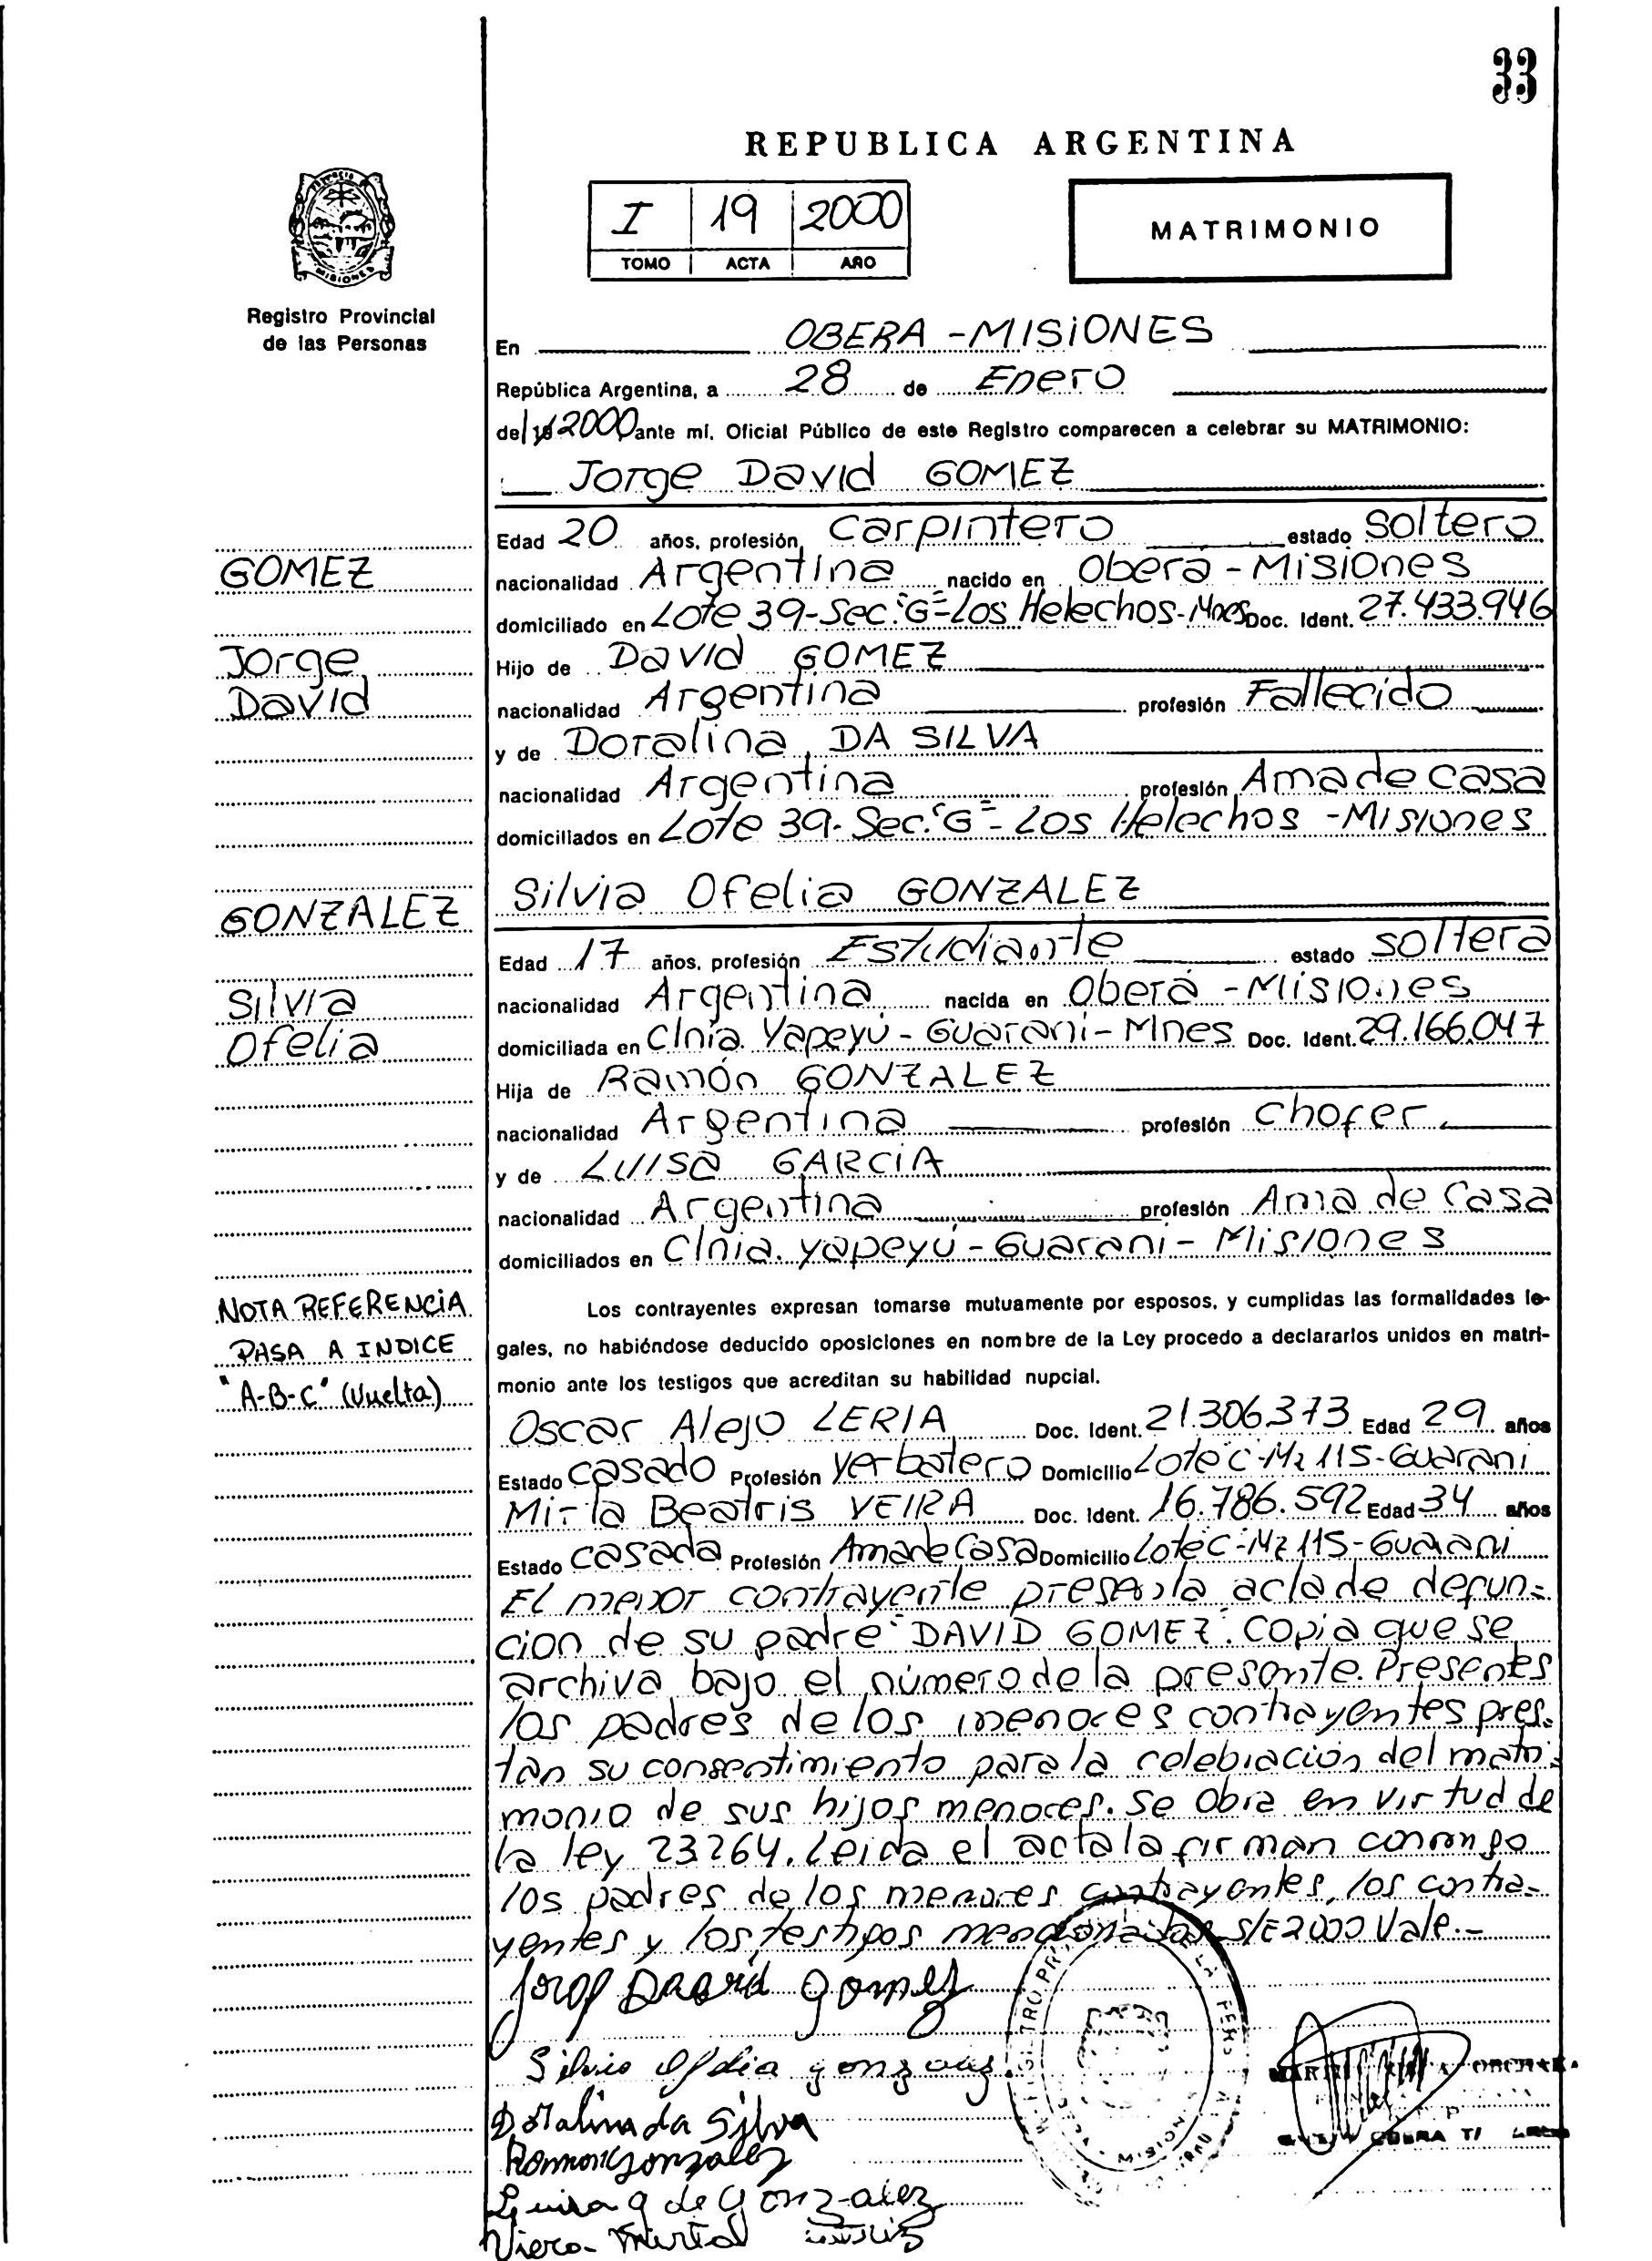 33
REPUBLICA ARGENTINA
I 19 2000
TOMO ACTA AÑO
MATRIMONIO
MISIONES
Registro Provincial
de las Personas
En OBERA - MISIONES
República Argentina, a 28 de Enero
del 19 2000 ante mí, Oficial Público de este Registro comparecen a celebrar su MATRIMONIO:
Jorge David GOMEZ
GOMEZ
Jorge
David
Edad 20 años, profesión Carpintero estado Soltero
nacionalidad Argentina nacido en Oberá - Misiones
domiciliado en Lote 39-Sec. "G"-Los Helechos-Mnes Doc. Ident. 27.433.946
Hijo de David GOMEZ
nacionalidad Argentina profesión Fallecido
y de Doralina DA SILVA
nacionalidad Argentina profesión Ama de casa
domiciliados en Lote 39-Sec. "G"-Los Helechos -Misiones
Silvia Ofelia GONZALEZ
GONZALEZ
Silvia
Ofelia
Edad 17 años, profesión Estudiante estado soltera
nacionalidad Argentina nacida en Oberá -Misiones
domiciliada en Clnia. Yapeyú - Guaraní - Mnes Doc. Ident. 29.166.047
Hija de Ramón GONZALEZ
nacionalidad Argentina profesión Chofer
y de Luisa GARCIA
nacionalidad Argentina profesión Ama de Casa
domiciliados en Clnia. Yapeyú - Guaraní - Misiones
NOTA REFERENCIA
PASA A INDICE
"A-B-C" (Vuelta)
Los contrayentes expresan tomarse mutuamente por esposos, y cumplidas las formalidades le-
gales, no habiéndose deducido oposiciones en nombre de la Ley procedo a declararlos unidos en matri-
monio ante los testigos que acreditan su habilidad nupcial.
Oscar Alejo LERIA Doc. Ident. 21.306.373 Edad 29 años
Estado Casado Profesión Yerbatero Domicilio Lote C-Mz 115-Guaraní
Mirta Beatris VEIRA Doc. Ident. 16.786.592 Edad 34 años
Estado Casada Profesión Ama de Casa Domicilio Lote C-Mz 115-Guaraní
El menor contrayente presenta acta de defun-
cion de su padre "DAVID GOMEZ". Copia que se
archiva bajo el número de la presente. Presentes
los padres de los menores contrayentes pres-
tan su consentimiento para la celebración del matri-
monio de sus hijos menores. Se obra en virtud de
la ley 23264. Leida el acta la firman conmigo
los padres de los menores contrayentes, los contra-
yentes y los testigos mencionados S/E 2000 Vale.-
Jorge David Gomez
Silvia Ofelia gonzalez
Doralina da Silva
Ramon Gonzalez
Luisa g de Gonzalez
Viera Mirta